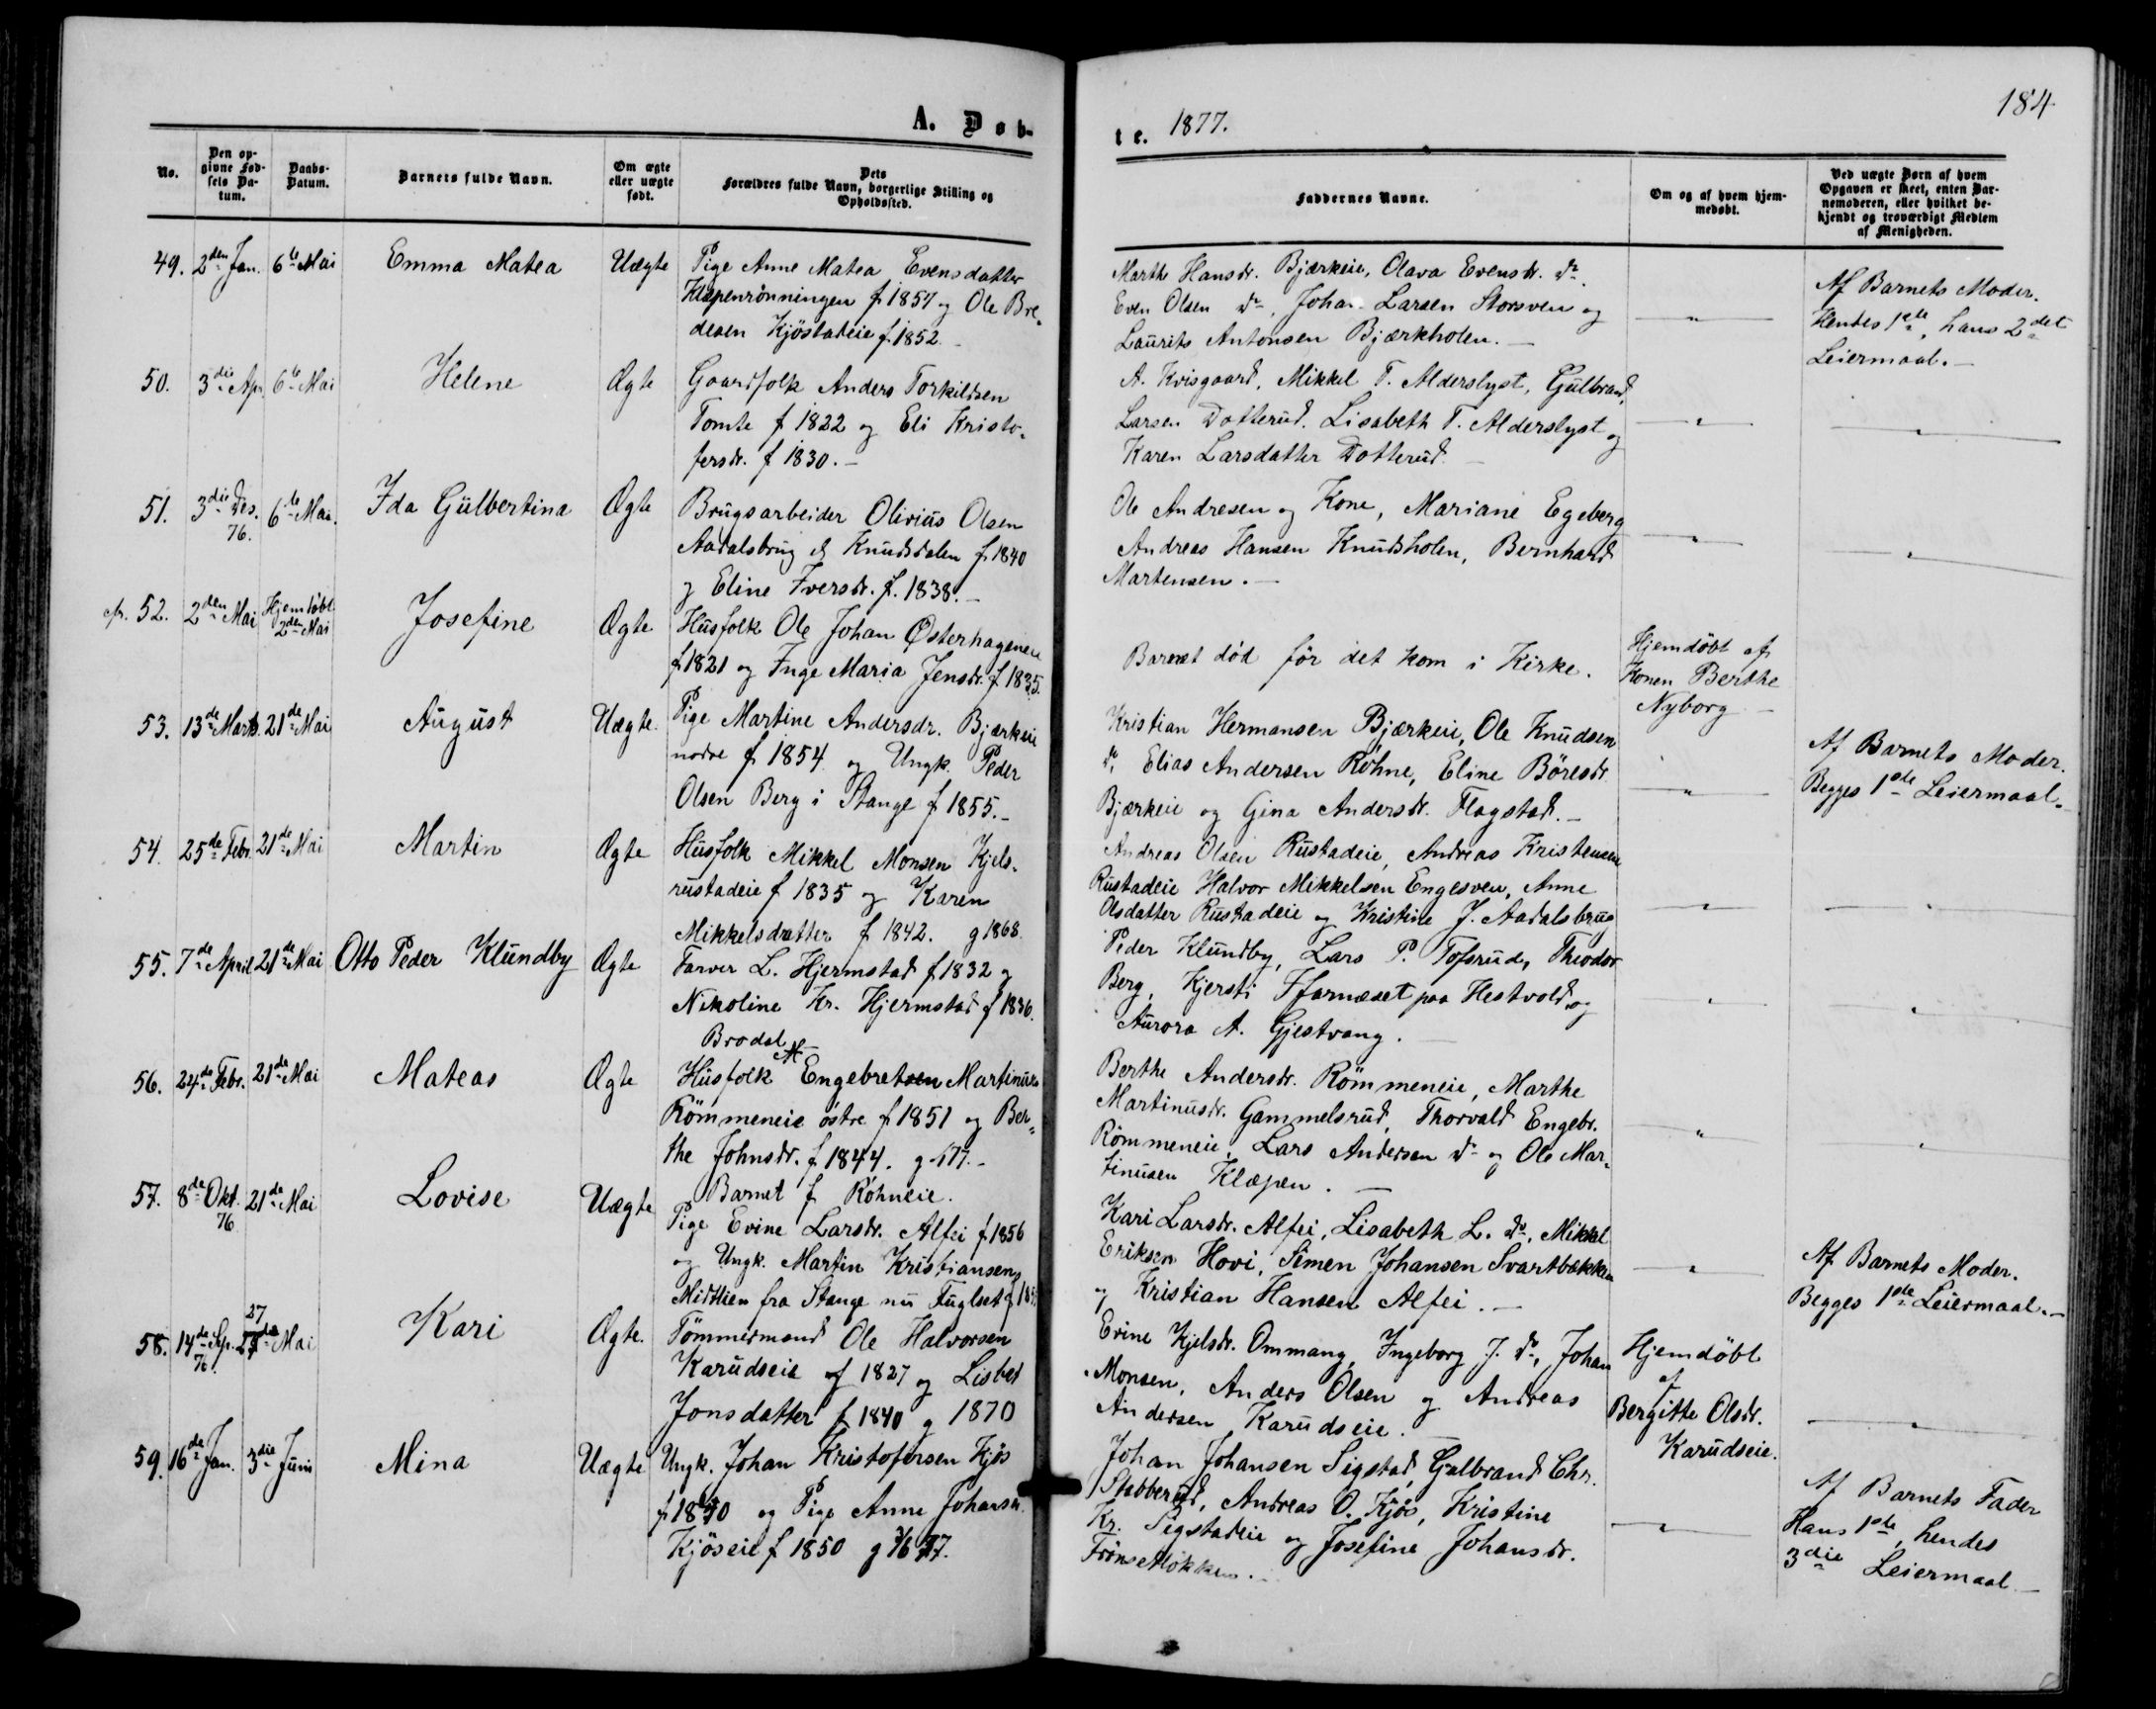 184
A. Døb-
te. 1877.
No.
Den op-
givne Fød-
sels Da-
tum.
Daabs-
Datum.
Barnets fulde Navn.
Om ægte
eller uægte
født.
Dets
Forældres fulde Navn, borgerlige Stilling og
Opholdssted.
Faddernes Navne.
Om og af hvem hjem-
medøbt.
Ved uægte Børn af hvem
Opgaven er skeet, enten Bar-
nemoderen, eller hvilket be-
kjendt og troværdigt Medlem
af Menigheden.
49. 2den Jan. 6te Mai Emma Matea Uægte
Pige Anne Matea Evensdatter
Klæpenrönningen f. 1857 og Ole Bre-
desen Kjöstadeie f. 1852.
Marthe Hansdr. Bjærkeie, Olava Evensdr. do.
Even Olsen do, Johan Larsen Storsven og
Laurits Antonsen Bjærkholen. —
Af Barnets Moder.
Hendes 1ste, hans 2det
Leiermaal. —
50. 3die Apr. 6te Mai Helene Ægte
Gaardfolk Anders Torkildsen
Tomte f 1822 og Eli Kristo-
fersdr. f 1830. —
A. Kvisgaard, Mikkel T. Alderslyst, Gulbrand
Larsen Dotterud. Lisabeth T. Alderslyst og
Karen Larsdatter Dotterud. —
51. 3die Des. 76. 6te Mai. Ida Gulbertina Ægte
Brugsarbeider Olivius Olsen
Aadalsbrug Knudsdalen f. 1840
og Eline Iversdr. f. 1838. —
Ole Andresen og Kone, Mariane Egeberg
Andreas Hansen Knudsholen, Bernhard
Martensen. —
52. 2den Mai Hjemdöbt 2den Mai Josefine Ægte
Husfolk Ole Johan Østerhagen
f 1821 og Inge Maria Jensdr. f 1835.
Barnet död för det kom i Kirke.
Hjemdöbt af
Konen Berthe
Nyborg —
53. 13de Marts. 21de Mai August Uægte.
Pige Martine Andersdr. Bjærkeie
nordre f 1854 og Ungk. Peder
Olsen Berg i Stange f 1855. —
Kristian Hermansen Bjærkeie, Ole Knudsen
do, Elias Andersen Röhne, ElineBöresdr.
Bjærkeie og Gina Andersdr. Flagstad. —
Af Barnets Moder.
Begges 1ste Leiermaal. —
54. 25de Febr. 21de Mai Martin Ægte
Husfolk Mikkel Monsen Kjels-
rustadeie f 1835 og Karen
Mikkelsdatter f 1842. g 1868.
Andreas Olsen Rustadeie, Andreas Kristensen
Rustadeie Halvor Mikkelsen Engesven, Anne
Olsdatter Rustadeie og Kristine J. Aadalsbrug
55. 7de April 21de Mai Otto Peder Klundby Ægte
Farver L. Hjermstad f 1832 og
Nikoline Kr. Hjermstad f 1836.
Brodal
Peder Klundby, Lars P. Tofsrud, Theodor
Berg, Kjersti Ffarnæset paa Hestvold og
Aurora A. Gjestvang.
56. 24de Febr. 21de Mai Mateas Ægte
Husfolk Engebretsen Martinus
Römmeneie östre f 1851 og Ber-
the Johnsdr. f 1844. g 77. —
Barnet f Röhneie.
Berthe Andersdr. Römmeneie, Marthe
Martinusdr. Gammelsrud, Thorvald Engebr.
Römmeneie, Lars Andersen do og Ole Mar-
tinusen Klæpen. —
57. 8de Okt. 76 21de Mai Lovise Uægte
Pige Evine Larsdr. Alfei f 1856
og Ungk. Martin Kristiansen
Midtlien fra Stange nu Fuglset
Kari Larsdr. Alfei, Lisabeth L. do. Mikkel
Eriksen Hovi, Simen Johansen Svartbækken
og Kristian Hansen Alfei. —
Af Barnets Moder.
Begges 1ste Leiermaal. —
58. 14de Sp. 76. 27 Mai Kari Ægte.
Tömmermand Ole Halvorsen
Karudseie f 1827 og Lisbet
Jonsdatter f 1840 g 1870
Evine Kjelsdr. Ommang, Ingeborg J. do, Johan
Monsen, Anders Olsen og Andreas
Andersen Karudseie. —
Hjemdöbt
af
Bergitte Olsdr.
Karudseie.
59. 16de Jan. 3die Juni Mina Uægte
Ungk. Johan Kristofersen Kjös
og Pige Anne Johansdr.
Kjöseie f 1850 g 3/6 77.
Johan Johansen Sigstad, Gulbrand Chr.
Stabberud, Andreas O. Kjös, Kristine
Kr. Sigstadeie og Josefine Johansdr.
Frönselökken. —
Af Barnets Fader
Hans 1ste, hendes
3die Leiermaal —